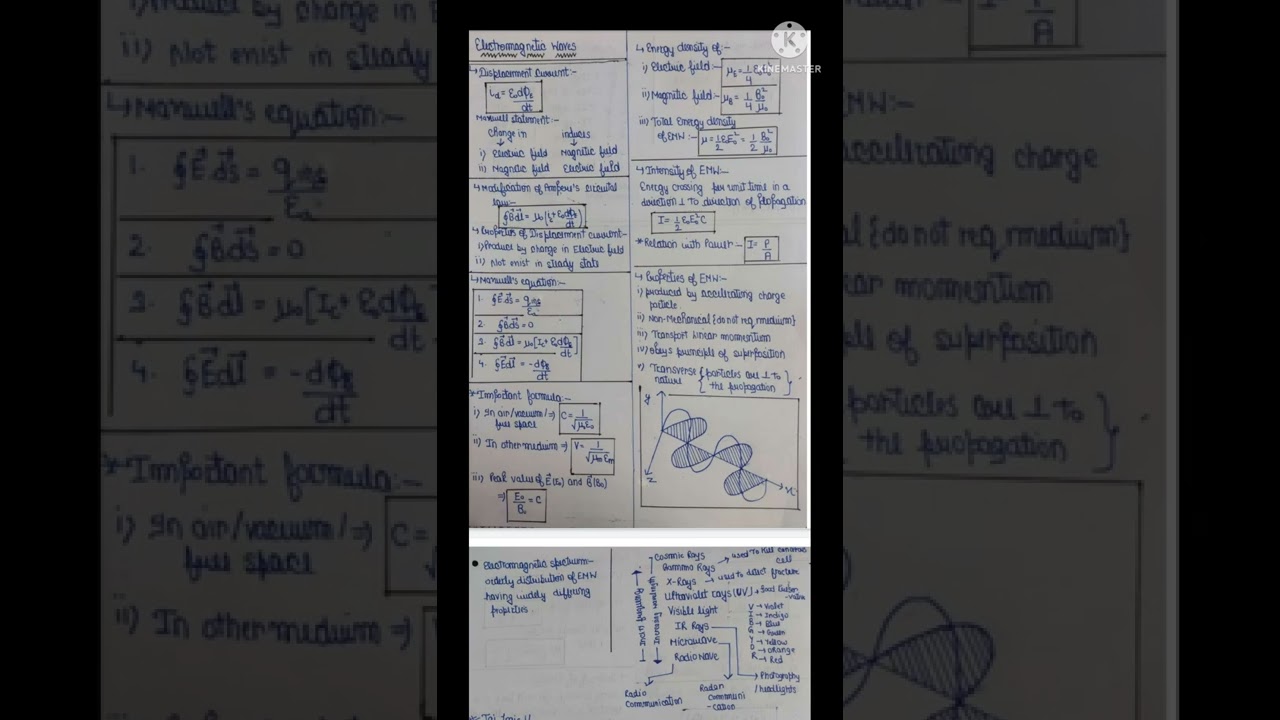 Electromagnetic Waves
↳ Displacement current:-
i_d = ε₀dφ_E/dt
Maxwell statement:-
Change in induces
i) Electric field Magnetic field
ii) Magnetic field Electric field
↳ Modification of Ampere's circuital
law:-
∮B⃗dl⃗ = μ₀(i_c + ε₀dφ_E/dt)
↳ Properties of Displacement current:-
i) Produce by change in Electric field
ii) Not exist in steady state
↳ Maxwell's equation:-
1. ∮E⃗ds⃗ = q_enc/ε₀
2. ∮B⃗ds⃗ = 0
3. ∮B⃗dl⃗ = μ₀[I_c + ε₀dφ_E/dt]
4. ∮E⃗dl⃗ = -dφ_B/dt
* Important formula:-
i) In air/vacuum/⇒ C = 1/√μ₀ε₀
free space
ii) In other medium ⇒ V = 1/√μ_m ε_m
iii) Peak value of E⃗(E₀) and B⃗(B₀)
⇒ E₀/B₀ = C
↳ Energy density of:-
i) Electric field:- μ_E = 1/4 ε₀E₀²
ii) Magnetic field:- μ_B = 1/4 B₀²/μ₀
iii) Total Energy density
of EMW:- μ = 1/2 εE₀² = 1/2 B₀²/μ₀
↳ Intensity of EMW:-
Energy crossing per unit time in a
direction ⊥ to direction of Propagation
I = 1/2 ε₀E₀²C
* Relation with Power - I = P/A
↳ Properties of EMW:-
i) produced by accelerating charge
particle
ii) Non-Mechanical {do not req medium}
iii) Transport linear momentum
iv) obeys principle of superposition
v) Transverse {particles are ⊥ to
nature the propagation}
y
z
x
• Electromagnetic spectrum-
orderly distribution of EMW
having widely differing
properties.
Cosmic Rays
Gamma Rays → used to kill cancerous
cell
X-Rays → used to detect fracture
Ultraviolet rays (UV)
Visible light
IR Rays
Microwave
Radiowave
V → Violet
I → Indigo
B → Blue
G → Green
Y → Yellow
O → Orange
R → Red
Photography
/headlights
Radio
Communication
Radar
Communi
-cation
K
KINEMASTER